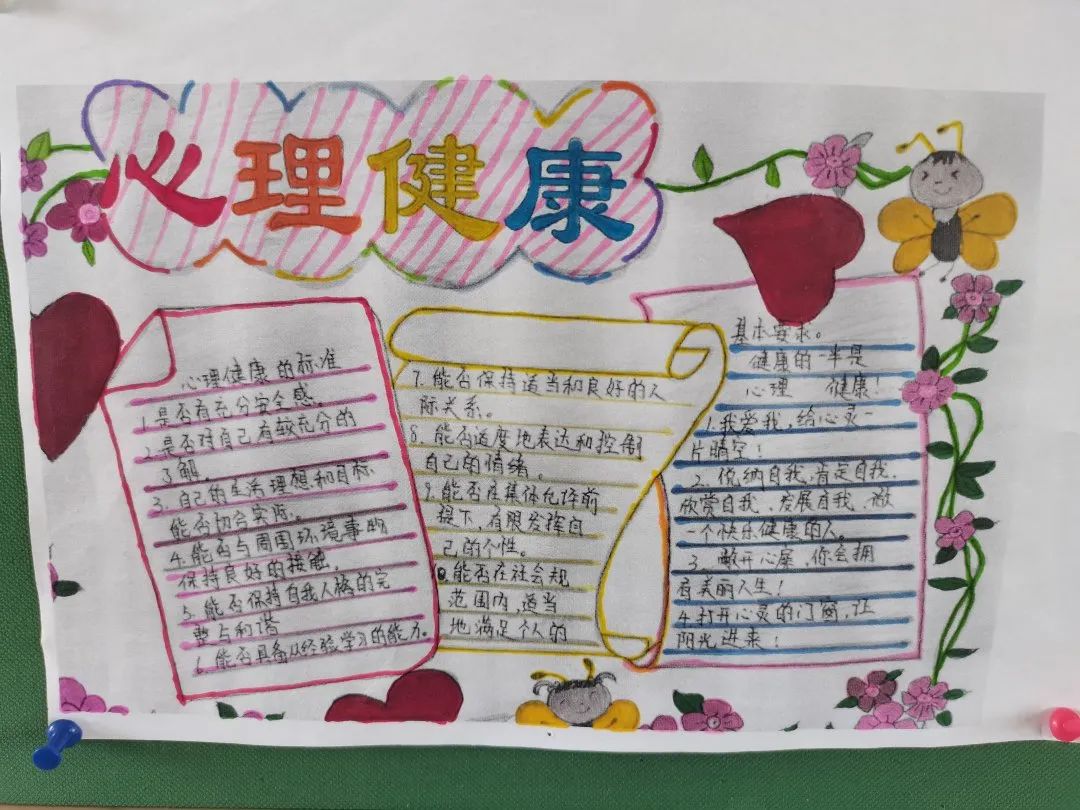 心理健康
心理健康的标准
1.是否有充分安全感。
2.是否对自己有较充分的
了解。
3.自己的生活理想和目标
能否切合实际。
4.能否与周围环境事物
保持良好的接触。
5.能否保持自我人格的完
整与和谐
6.能否具备从经验学习的能力。
7.能否保持适当和良好的人
际关系。
8.能否适度地表达和控制
自己的情绪。
9.能否在集体允许前
提下,有限发挥自
己的个性。
10.能否在社会规
范围内,适当
地满足个人的
基本要求。
健康的一半是
心理 健康!
1.我爱我,给心灵一
片晴空!
2.悦纳自我,肯定自我、
欣赏自我、发展自我、做
一个快乐健康的人。
3.敞开心扉,你会拥
有美丽人生!
4.打开心灵的门窗,让
阳光进来!